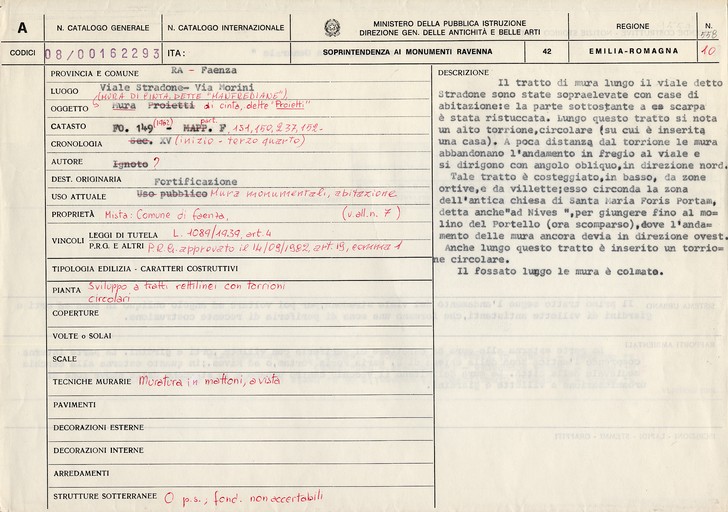 A
N. CATALOGO GENERALE
N. CATALOGO INTERNAZIONALE
MINISTERO DELLA PUBBLICA ISTRUZIONE
DIREZIONE GEN. DELLE ANTICHITÀ E BELLE ARTI
REGIONE
N.
558
CODICI
08/00162293
ITA:
SOPRINTENDENZA AI MONUMENTI RAVENNA
42
EMILIA-ROMAGNA
10
PROVINCIA E COMUNE RA - Faenza
LUOGO Viale Stradone- Via Morini
(MURA DI CINTA, DETTE "MANFREDIANE")
OGGETTO Mura Proietti di cinta, dette "Proietti"
CATASTO FO. 149 (1962) - MAPP. part. F, 151, 150, 237, 152-
CRONOLOGIA Sec. XV (inizio - terzo quarto)
AUTORE Ignoto ?
DEST. ORIGINARIA Fortificazione
USO ATTUALE Uso pubblico Mura monumentali, abitazione
PROPRIETÀ Mista: Comune di Faenza, (v. all. n. 7)
VINCOLI
LEGGI DI TUTELA L. 1089/1939, art. 4
P.R.G. E ALTRI P.R.G. approvato il 14/09/1982, art. 19, comma 1
TIPOLOGIA EDILIZIA - CARATTERI COSTRUTTIVI
PIANTA Sviluppo a tratti rettilinei con torrioni
circolari
COPERTURE
VOLTE o SOLAI
SCALE
TECNICHE MURARIE Muratura in mattoni, a vista
PAVIMENTI
DECORAZIONI ESTERNE
DECORAZIONI INTERNE
ARREDAMENTI
STRUTTURE SOTTERRANEE O p.s.; fond. non accertabili
DESCRIZIONE
Il tratto di mura lungo il viale detto
Stradone sono state sopraelevate con case di
abitazione: la parte sottostante a scarpa
è stata ristuccata. Lungo questo tratto si nota
un alto torrione, circolare (su cui è inserita
una casa). A poca distanza dal torrione le mura
abbandonano l'andamento in fregio al viale e
si dirigono con angolo obliquo, in direzione nord.
Tale tratto è costeggiato, in basso, da zone
ortive, e da villette; esso circonda la zona
dell'antica chiesa di Santa Maria Foris Portam,
detta anche "ad Nives ", per giungere fino al mo-
lino del Portello (ora scomparso), dove l'anda-
mento delle mura ancora devia in direzione ovest.
Anche lungo questo tratto è inserito un torrio-
ne circolare.
Il fossato lungo le mura è colmato.